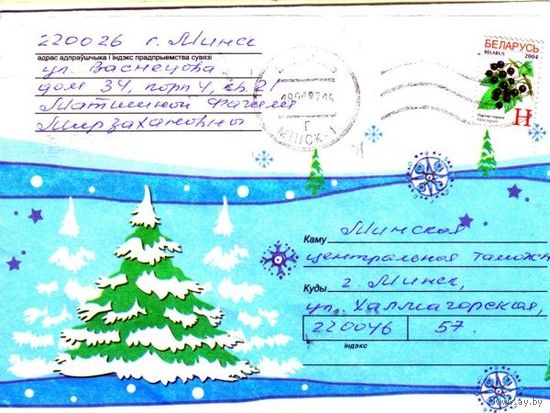 220026 г. Минск
адрас адпраўшчыка і індэкс прадпрыемства сувязі
ул. Васнецова
дом 34, корп 4, кв. 21
Матшиной
Мирзахановны
МІНСК-1
БЕЛАРУСЬ
BELARUS 2004
Н
Каму Минская
центральная таможн
Куды г. Минск,
ул. Халмагорская,
220046 57.
індэкс
www.ay.by